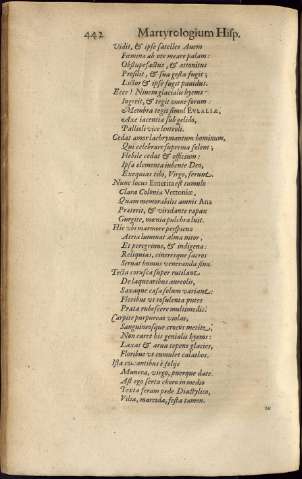 442 Martyrologium Hisp.
Vidit, & ipse satelles Auem
Fœmina ab ore meare palam:
Obstupefactus, & attonitus
Prosilit, & sua gesta fugit;
Lictor & ipse fugit pauidus.
Ecce! Niuem glacialis hyems
Ingerit, & tegit omne forum
Membra tegit simul EVLALIÆ,
Axe iacentia sub gelido,
Pallioli vice linteoli.
Cedat amor lachrymantum hominum,
Qui celebrare suprema solent;
Flebile cedat & officium:
Ipsa elementa iubente Deo,
Exequias tibi, Virgo, ferunt.
Nunc locus Emerita est tumulo
Clara Colonia Vettoniæ,
Quam memorabilis amnis Ana
Præterit, & viridante rapax
Gurgite, mœnia pulchra luit.
Hic vbi marmore perspicuo
Atria luminat alma nitor,
Et peregrinus, & indigena:
Reliquias, cineresque sacros
Seruat humus veneranda sinu.
Tecta corusca super rutilant
De laqueatibus aureolis,
Saxaque cæsa solum variant:
Floribus vt rosulenta putes
Prata rubescere multimodis.
Carpite purpureas violas,
Sanguineosque crocos metite,
Non caret his genialis hyems:
Laxat & arua tepens glacies,
Floribus vt cumulet calathos.
Ista comantibus è folijs
Munera, virgo, puerque date.
Ast ego serta choro in medio
Texta feram pede Dactylico,
Vilia, marcida, festa tamen.